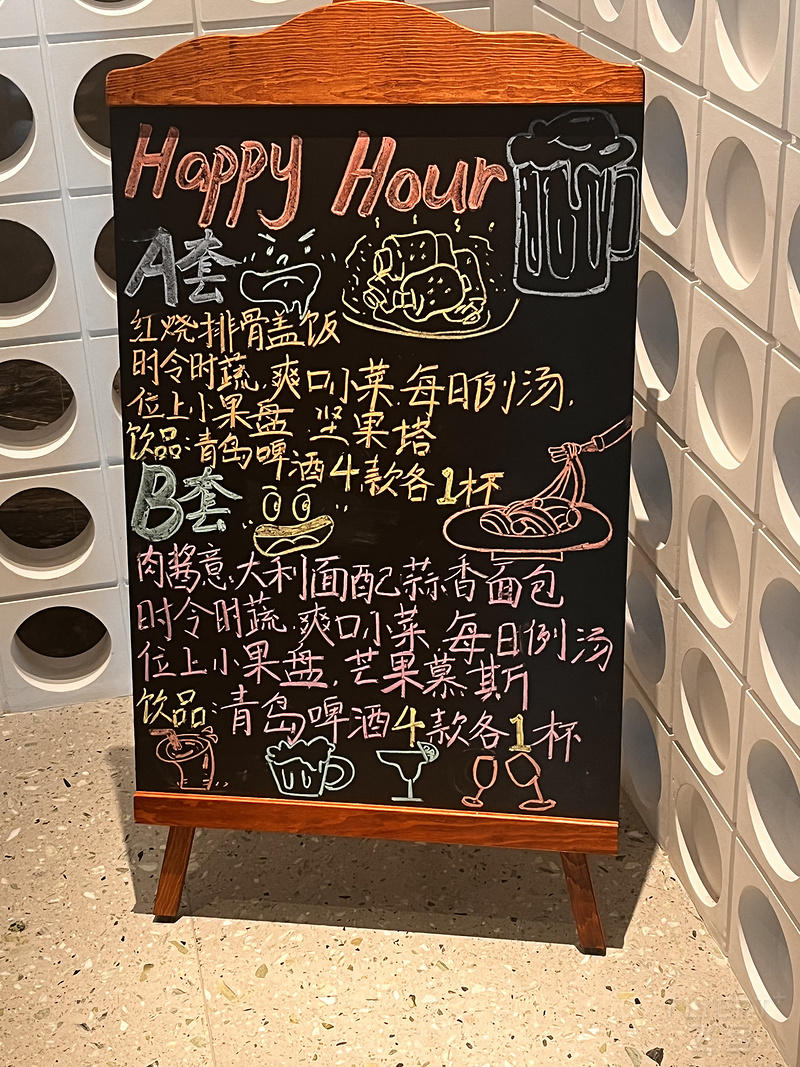 Happy Hour
A套
红烧排骨盖饭
时令时蔬.爽口小菜.每日例汤.
位上小果盘.坚果塔
饮品:青岛啤酒4款各1杯
B套
肉酱意大利面配蒜香面包
时令时蔬.爽口小菜.每日例汤
位上小果盘.芒果慕斯
饮品:青岛啤酒4款各1杯